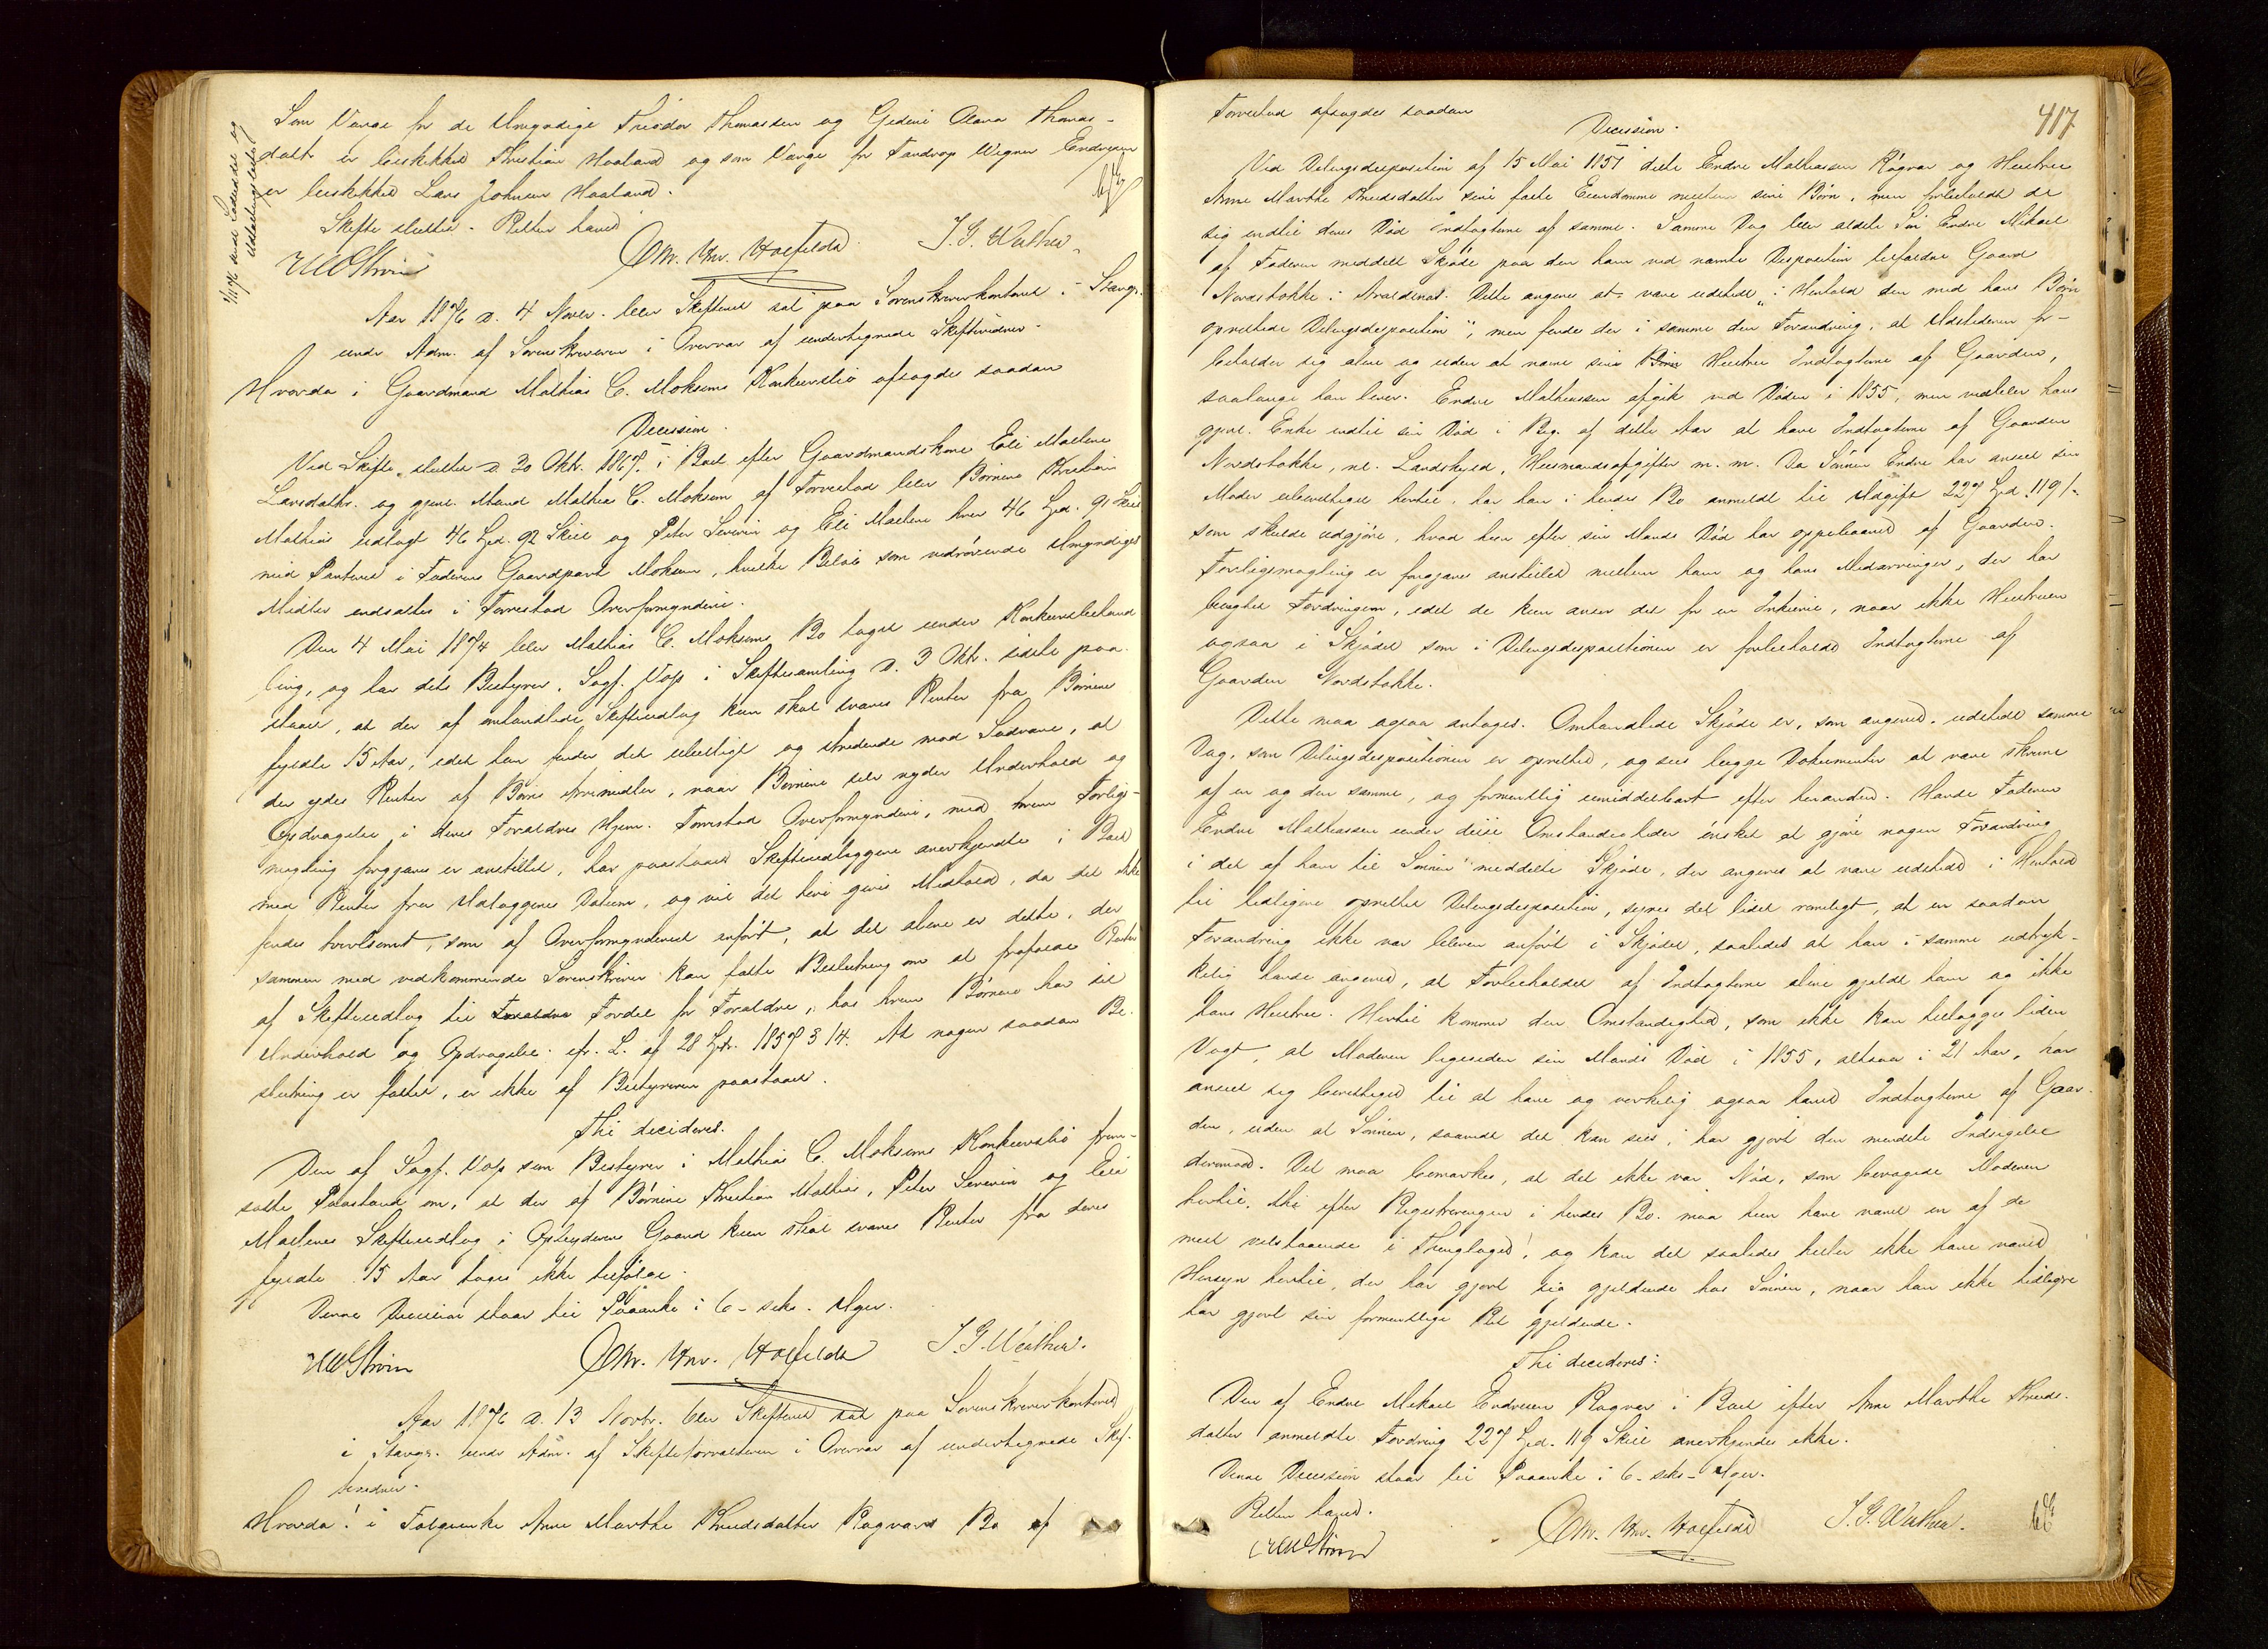 Som Værge for de Umyndige Theodor Thomassen og Gedine Olava Thomas-
datt er beskikket Kristian Haaland og som Værge for Tandrup Wigner Endresen
er beskikket Lars Johnsen Haaland.
Skifte sluttet. Retten hævet
Chr. Hnr. Hoffeldt. J. G. Wathne.
Aar 1876 d. 4 Novbr. blev Skifteret sat paa Sorenskriverkontoret i Stavgr.
under Adm. af Sorenskriveren i Overvær af undertegnede Skiftevidner.
Hvorda i Gaardmand Mathias C. Moksems Konkursbo afsagdes saadan
Decision.
Ved Skifte, sluttet d. 30 Oktr. 1867 i Boet efter Gaardmandskone Eli Malene
Larsdattr. og gjenl. Mand Mathias C. Moksem af Torvestad blev Børnene Kristian
Mathias udlagt 46 Spd. 92 Skill og Peter Severin og Eli Malene hver 46 Spd. 91 Skill
med Panteret i Faderens Gaardpart Moksem, hvilke Beløb som vedrørende Umyndiges
Midler indsattes i Torvestad Overformynderi.
Den 4 Mai 1874 blev Mathias C. Moksems Bo taget under Konkursbehand
ling, og har dets Bestyrer, Sagf. Vogt i Skiftesamling d. 3 Oktr. sidstl. paa-
staaet, at der af omhandlede Skifteudlæg kun skal svares Renter fra Børnenes
fyldte 15 Aar, idet han finder det ubilligt og stridende mod Sædvane, at
der ydes Renter af Børns Arvemidler, naar Børnene selv nyder Underhold og
Opdragelse i deres Forældres Hjem. Torvestad Overformynderi, med hvem Forligs-
mægling forgjæves er anstillet, har paastaaet Skifteudlæggene anerkjendte i Boet
med Renter fra Udlæggenes Datum, og vil det heri gives Medhold, da det ikke
findes tvivlsomt, som af Overformynderiet anført, at det alene er dette, der
sammen med vedkommende Sorenskriver kan fatte Beslutning om at frafalde Renter
af Skifteudlæg til Fordel for Forældre, hos hvem Børnene har sit
Underhold og Opdragelse. cfr. L. af 28 Septr. 1857 § 14. At nogen saadan Be-
slutning er fattet, er ikke af Bestyreren paastaaet.
Thi decideres.
Den af Sagf. Vogt som Bestyrer i Mathias C. Moksems Konkursbo frem-
satte Paastand om, at der af Børnene Kristian Mathias, Peter Severin og Eli
Malenes Skifteudlæg i Opbyderens Gaard kun skal svares Renter fra deres
fyldte 15 Aar tages ikke tilfølge.
Denne Decision staar til Paaanke i 6 - seks - Uger.
Chr. Hnr. Hoffeldt J. G. Wathne.
Aar 1876 d. 13 Novbr. blev Skifteret sat paa Sorenskriverkontoret
i Stavgr. under Adm. af Skifteforvalteren i Overvær af undertegnede Skif-
tevidner.
Hvorda! i Føderaadsenke Anne Marthe Knudsdatter Røgvars Bo af
417
Torvestad afsagdes saadan
Decision.
Ved Delingsdisposition af 15 Mai 1851 delte Endre Mathiassen Røgvar og Hustru
Anne Marthe Knudsdatter sine faste Eiendomme mellem sine Børn, men forbeholdt de
sig indtil deres Død Indtægterne af samme. Samme Dag blev ældste Søn Endre Mikael
af Faderen meddelt Skjøde paa den ham ved nævnte Disposition tilfaldne Gaard
Nordstokke i Avaldsnæs. Dette angives at være udstedt „i Henhold den med hans Børn
oprettede Delingsdisposition“, men findes der i samme den Forandring, at Udstederen for-
beholder sig alene og uden at nævne sin Børn Hustru Indtægterne af Gaarden,
saalænge han lever. Endre Mathiassen afgik ved Døden i 1855, men vedblev hans
gjenl. Enke indtil sin Død i Beg. af dette Aar at have Indtægterne af Gaarden
Nordstokke, nl. Landskyld, Husmandsafgifter m. m. Da Sønnen Endre har anseet sin
Moder uberettiget hertil, har han i hendes Bo anmeldt til Udgift 227 Spd. 119 /-
som skulde udgjøre, hvad hun efter sin Mands Død har oppebaaret af Gaarden.
Forligsmægling er forgjæves anstillet mellem ham og hans Medarvinger, der har
benægtet Fordringen, idet de kun anser det for en Inkurie, naar ikke Hustruen
ogsaa i Skjødet som i Delingsdispositionen er forbeholdt Indtægterne af
Gaarden Nordstokke.
Dette maa ogsaa antages. Omhandlede Skjøde er, som angivet, udstedt samme
Dag, som Delingsdispositionen er oprettet, og sees begge Dokumenter at være skrevne
af en og den samme, og formentlig umiddelbart efter hinanden. Havde Faderen
Endre Mathiassen under disse Omstændigheder ønsket at gjøre nogen Forandring
i det af ham til Sønnen meddelte Skjøde, der angives at være udstedt i Henhold
til tidligere oprettet Delingsdisposition, synes det lidet rimeligt, at en saadan
Forandring ikke var bleven anført i Skjødet, saaledes at han i samme udtryk-
kelig havde angivet, at Forbeholdet af Indtægterne alene gjældt ham og ikke
hans Hustru. Hertil kommer den Omstændighed, som ikke kan tillægges liden
Vægt, at Moderen ligesiden sin Mands Død i 1855, altsaa i 21 Aar, har
anseet sig berettiget til at have og virkelig ogsaa havt Indtægterne af Gaar-
den, uden at Sønnen, saavidt det kan sees, har gjort den mindste Indsigelse
derimod. Det maa bemærkes, at det ikke var Nød, som bevægede Moderen
hertil, thi efter Registreringen i hendes Bo maa hun have været en af de
mest velstaaende i Thinglaget, og kan det saaledes heller ikke have været
Hensyn hertil, der har gjort sig gjeldende hos Sønnen, naar han ikke tidligere
har gjort sin formentlige Ret gjeldende.
Thi decideres:
Den af Endre Mikael Endresen Røgvar i Boet efter Anne Marthe Knuds-
datter anmeldte Fordring 227 Spd. 119 Skill anerkjendes ikke.
Denne Decision staar til Paaanke i 6 - seks - Uger.
Retten hævet.
Chr. Hnr. Hoffeldt J. G. Wathne.